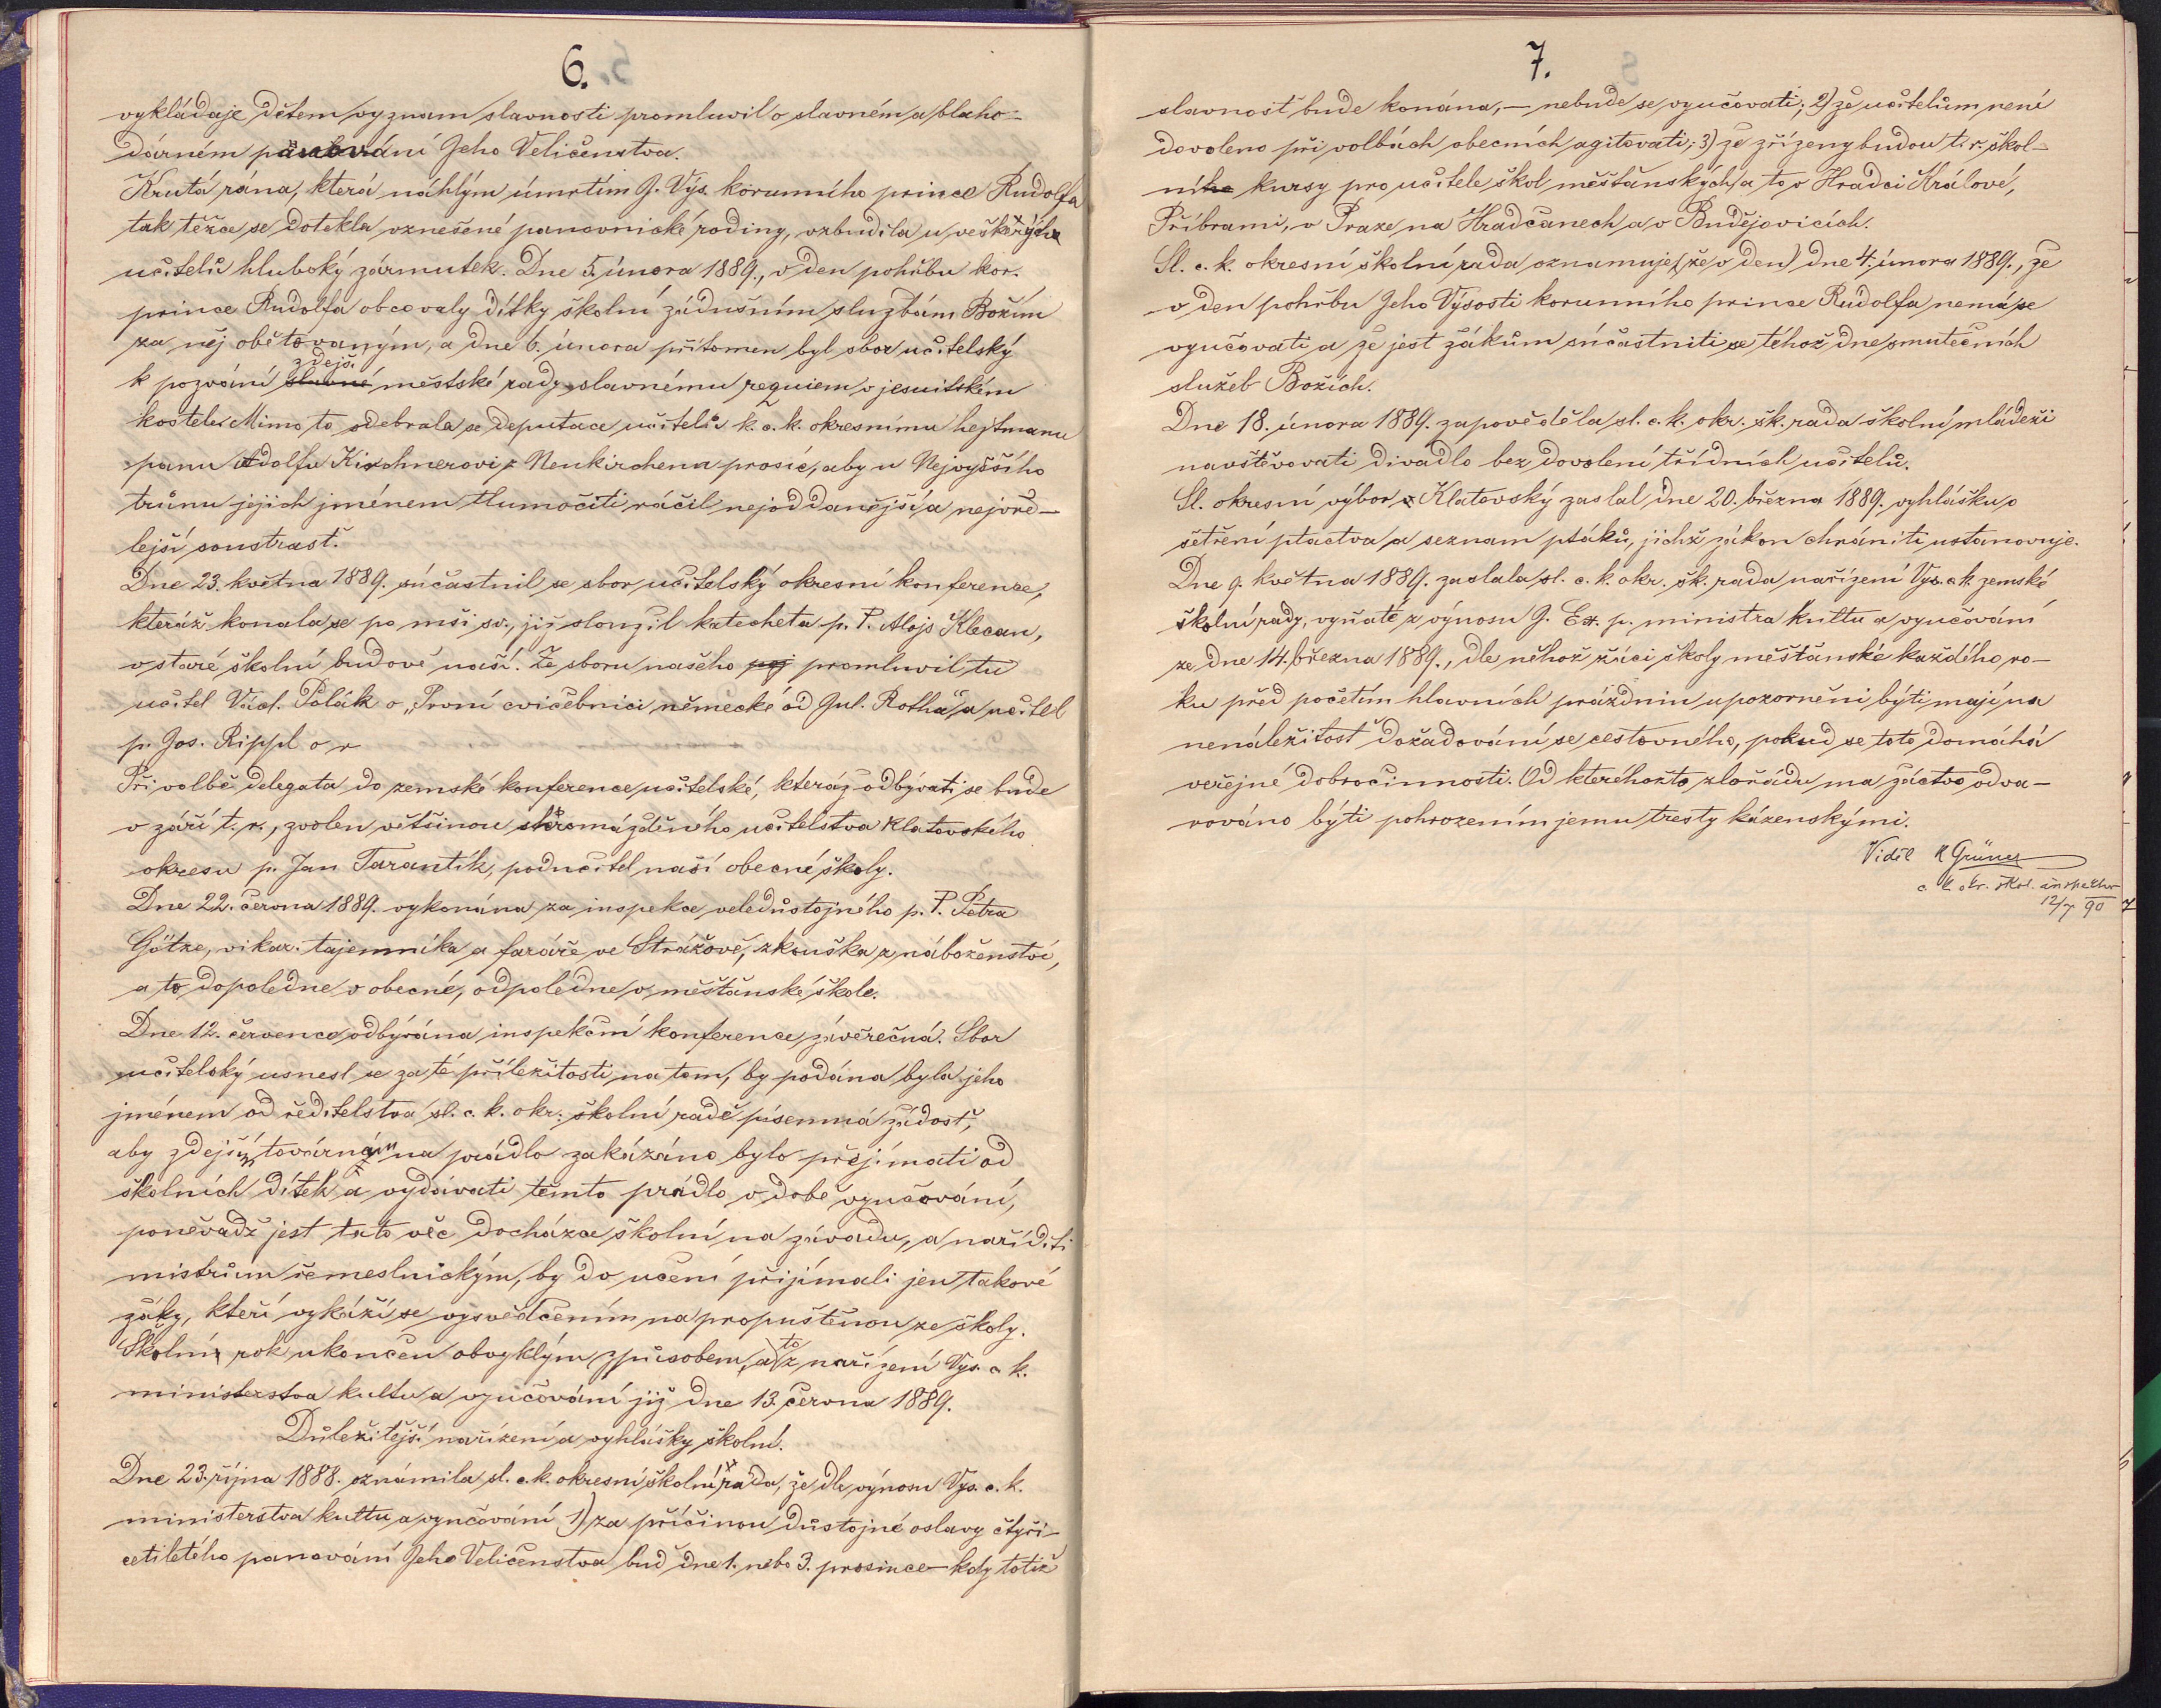 6.
vykládaje dětem význam slavnosti promluvil o slavném a blaho-
dárném panování Jeho Veličenstva.
Krutá rána, která náhlým úmrtím J. Výs. korunního prince Rudolfa
tak těžce se dotekla vznešené panovnické rodiny, vzbudila u veškerých
učitelů hluboký zármutek. Dne 5. února 1889., v den pohřbu kor.
prince Rudolfa obcovaly dítky školní zádušním službám Božím
za něj obětovaným, a dne 6. února přítomen byl sbor učitelský
zdejší
k pozvání slavné městské rady slavnému requiem v jesuitském
kostele. Mimo to odebrala se deputace učitelů k. c. k. okresnímu hejtmanu
panu Adolfu Kirchnerovi z Neukirchenu prosíc, aby u Nejvyššího
trůnu jejich jménem tlumočiti ráčil nejoddanější a nejvře-
lejší soustrast.
Dne 23. května 1889. súčastnil se sbor učitelský okresní konference,
kteráž konala se po mši sv., již sloužil katecheta p. P. Alojs Klecan,
v staré školní budově naší. Ze sboru našeho poj promluvil tu
učitel Václ. Polák o „První cvičebnici německé od Jul. Rotha" a učitel
p. Jos. Rippl o v
Při volbě delegata do zemské konference učitelské, kteráž odbývati se bude
v září t. r., zvolen většinou shromážděného učitelstva Klatovského
okresu p. Jan Tarantík, podučitel naší obecné školy.
Dne 22. června 1889. vykonána za inspekce veledůstojného p. P. Petra
Götze, vikar. tajemníka a faráře ve Strážově, zkouška z náboženství,
a to dopoledne v obecné, odpoledne v měšťanské škole.
Dne 12. července odbývána inspekční konference závěrečná. Sbor
učitelský usnesl se za té příležitosti na tom, by podána byla jeho
jménem od ředitelstva sl. c. k. okr. školní radě písemná žádost,
aby zdejším továrnám na prádlo zakázáno bylo přejímati od
školních dítek a vydávati těmto prádlo v době vyučování,
poněvadž jest tato věc docházce školní na závadu, a naříditi
mistrům řemeslnickým, by do učení přijímali jen takové
žáky, kteří vykáží se vysvědčením na propuštěnou ze školy.
to
Školní rok ukončen obvyklým způsobem, a z nařízení Vys. c. k.
ministerstva kultu a vyučování již dne 13. června 1889.
Důležitější nařízení a vyhlášky školní.
Dne 23. října 1888. oznámila sl. c. k. okresní školní rada, že dle výnosu Vys. c. k.
ministerstva kultu a vyučování 1) za příčinou důstojné oslavy čtyři-
cetiletého panování Jeho Veličenstva buď dne 1. nebo 3. prosince – kdy totiž
7.
slavnosť bude konána, – nebude se vyučovati; 2) že učitelům není
dovoleno při volbách obecních agitovati; 3) že zřízeny budou t. r. škol-
ního kursy pro učitele škol měšťanských a to v Hradci Králové,
Příbrami, v Praze na Hradčanech a v Budějovicích.
Sl. c. k. okresní školní rada oznamuje (že v den) dne 4. února 1889., že
v den pohřbu Jeho Výsosti korunního prince Rudolfa nemá se
vyučovati a že jest žákům súčastniti se téhož dne smutečních
služeb Božích.
Dne 18. února 1889. zapověděla sl. c. k. okr. šk. rada školní mládeži
navštěvovati divadlo bez dovolení třídních učitelů.
Sl. okresní výbor v Klatovský zaslal dne 20. března 1889. vyhlášku o
šetření ptactva a seznam ptáků, jichž zákon chrániti ustanovuje.
Dne 9. května 1889. zaslala sl. c. k. okr. šk. rada nařízení Vys. c. k. zemské
školní rady, vyňaté z výnosu J. Ex. p. ministra kultu a vyučování
ze dne 14. března 1889., dle něhož žáci školy měšťanské každého ro-
ku před početím hlavních prázdnin upozorněni býti mají na
nenáležitost dožadování se cestovného, pokud se toto domáhá
veřejné dobročinnosti. Od kteréhožto zlořádu má žáctvo odva-
rováno býti pohrozením jemu tresty kázenskými.
Viděl Grüner
c. k. okr. škol. inspektor
12/7 90